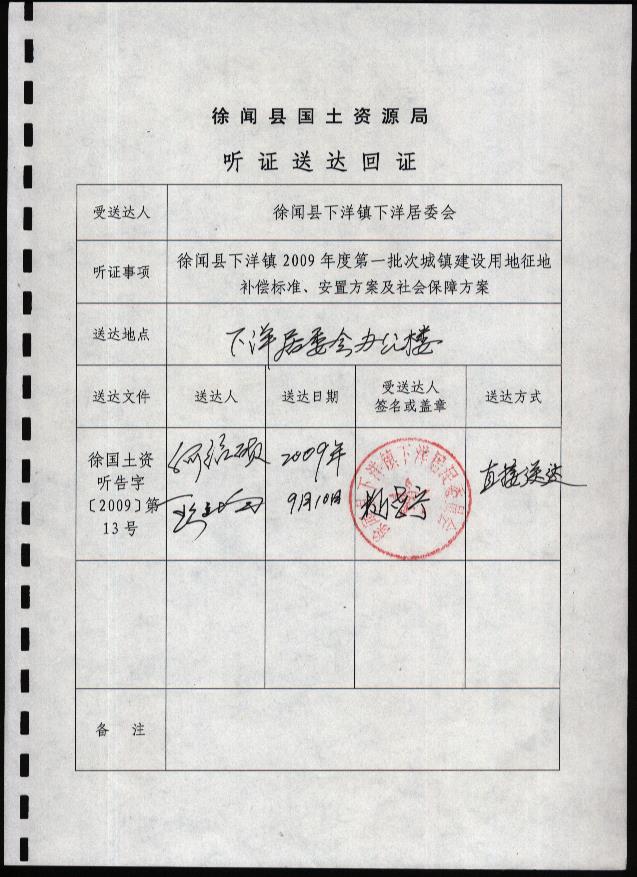 徐闻县国土资源局
听证送达回证
受送达人
徐闻县下洋镇下洋居委会
听证事项
徐闻县下洋镇 2009 年度第一批次城镇建设用地征地
补偿标准、安置方案及社会保障方案
送达地点
下洋居委会办公楼
送达文件
送达人
送达日期
受送达人
签名或盖章
送达方式
徐国土资
听告字
〔2009〕第
13 号
2009年
9月10日
徐闻县下洋镇下洋居民委员会
直接送达
备 注